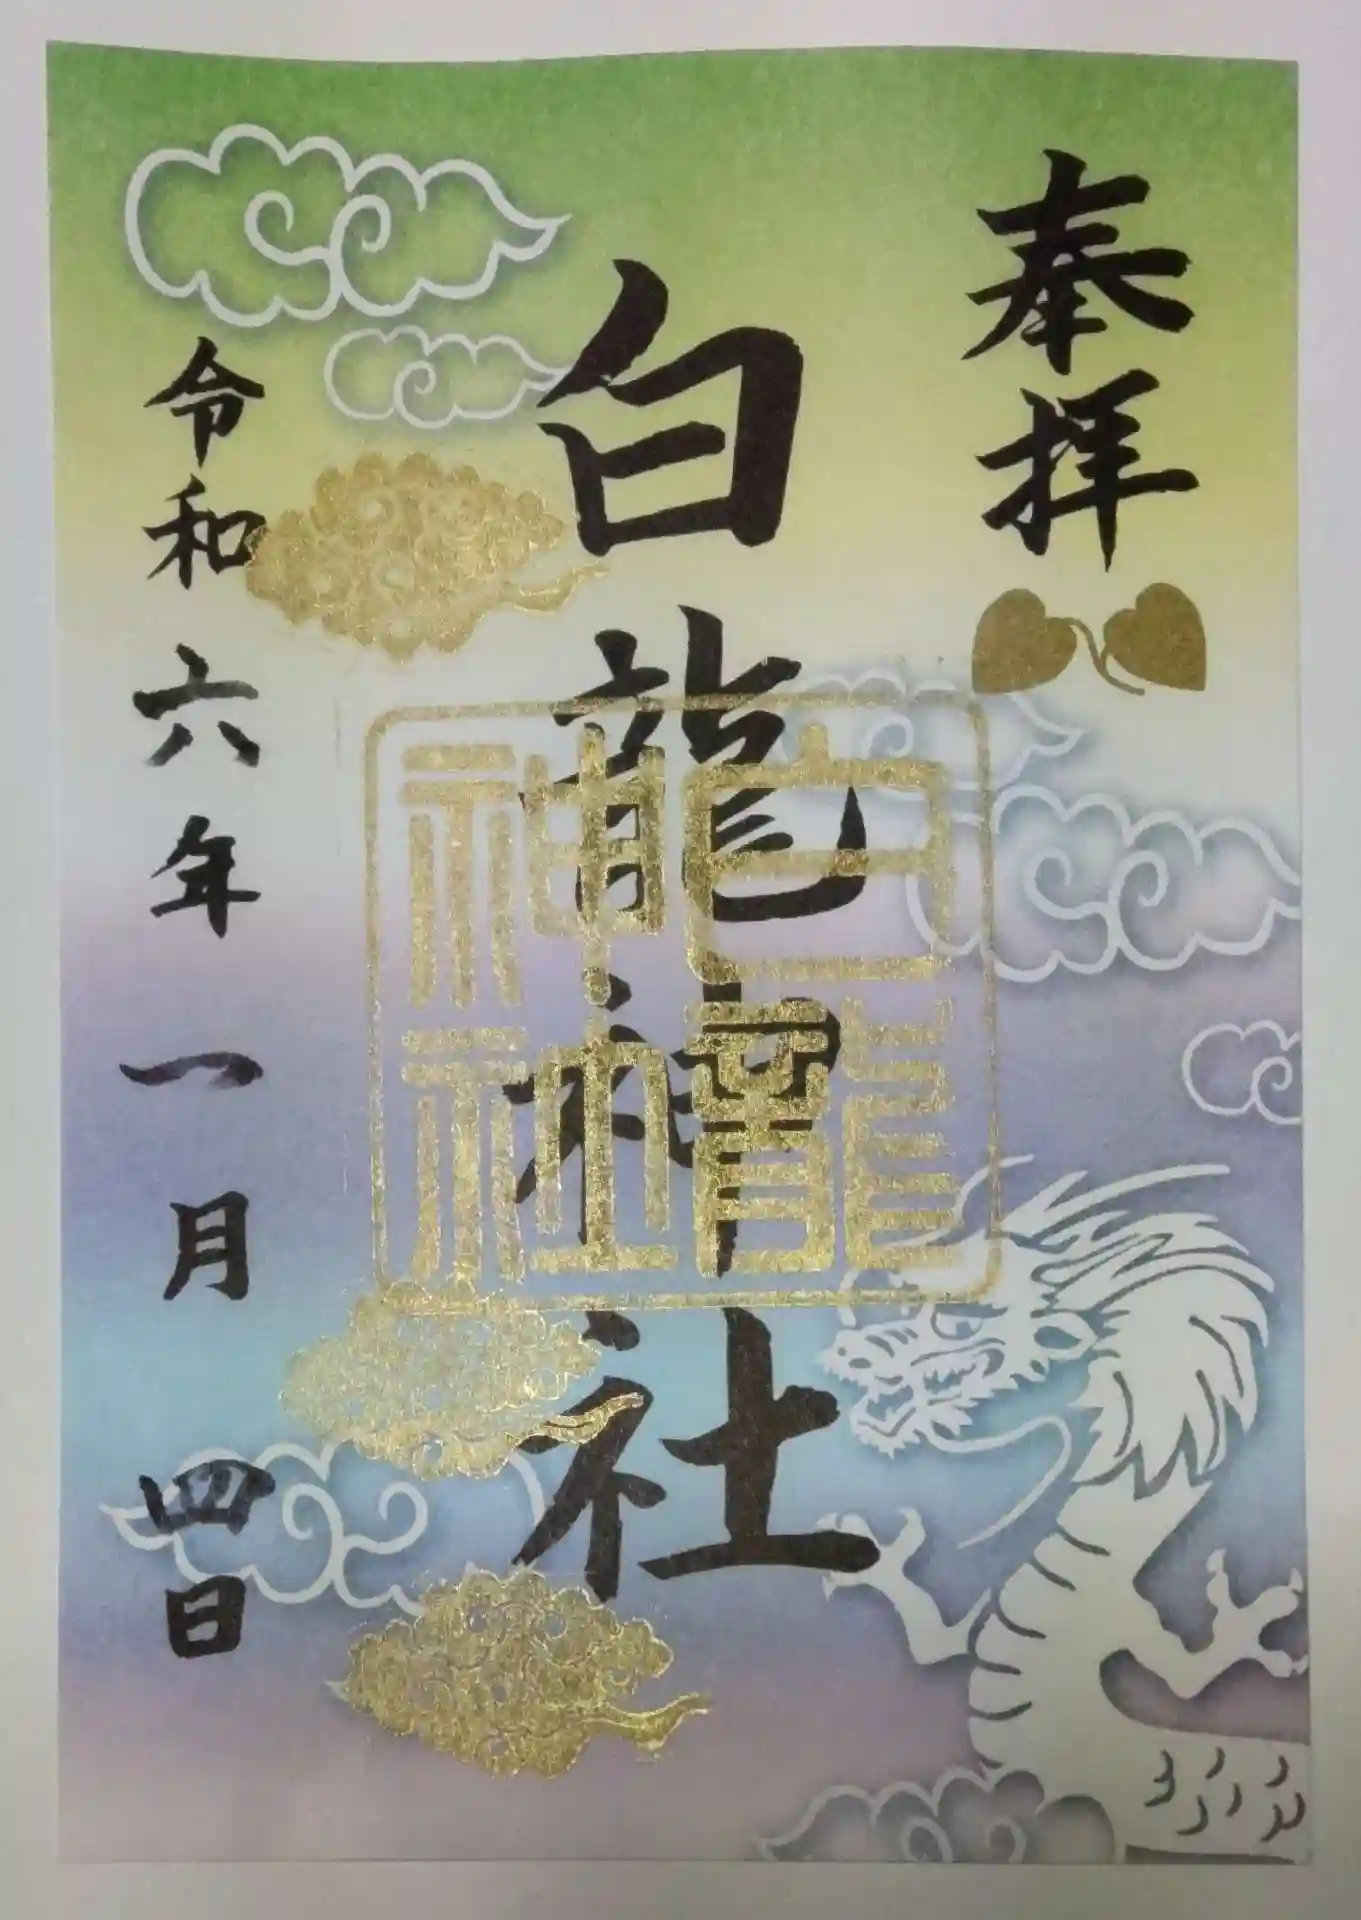 奉拝
白龍神社
白龍
神社
令和六年一月四日